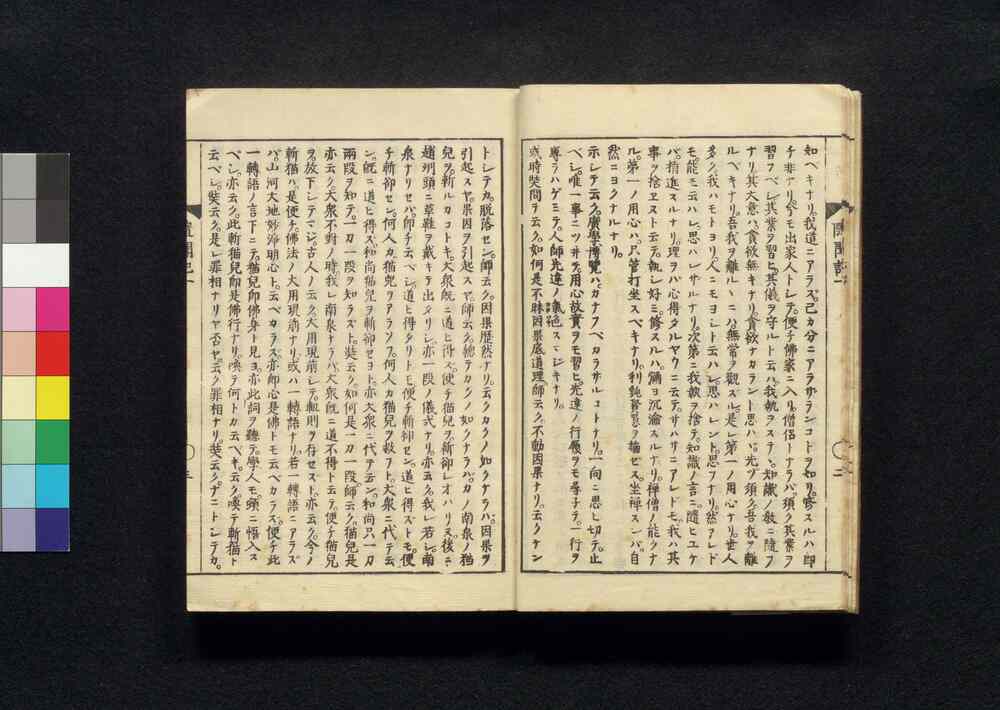 知ベキナリ。我道ニアラズ。己カ分ニアラザランコトヲ知リ。修スルハ即
チ非ナリ。今モ出家人トシテ。便チ佛家ニ入リ。僧侶トナラバ。須ク其業ヲ
習フベシ。其業ヲ習ヒ。其儀ヲ守ルト云ハ。我執ヲステヽ。知識ノ教ニ隨フ
ナリ。其大意ハ。貪欲無キナリ。貪欲ナカラント思ハヾ。先ヅ須ク吾我ヲ離
ルベキナリ。吾我ヲ離ルヽニハ。無常ヲ觀スル。是レ第一ノ用心ナリ。世人
多ク。我ハモトヨリ。人ニモヨシト云ハレ。思ハレント。思フナリ。然アレド
モ。能モ云ハレ。思ハレザルナリ。次第ニ我執ヲ捨テ。知識ノ言ニ隨ヒユケ
バ。精進スルナリ。理ヲハ心得タルヤウニ云テ。サハサリニアレドモ。我ハ其
事ヲ捨ヱヌト云テ。執シ好ミ修スルハ。彌ヨ沉淪スルナリ。禪僧ノ能クナ
ル。第一ノ用心ハ。只管打坐スベキナリ。利鈍賢愚ヲ論ゼス。坐禪スレバ。自
然ニヨクナルナリ。
示シテ云ク。廣學博覽ハ。カナフベカラザルコトナリ。一向ニ思ヒ切テ。止
ベシ。唯一事ニツヰテ。用心故實ヲモ習ヒ。先達ノ行履ヲモ尋子テ。一行ヲ
專ラハゲミテ。人師先達ノ氣色スマジキナリ。
或時奘問ヲ云ク。如何是不昧因果底道理。師云ク。不動因果ナリ。云クナン
隨聞記一
二
トシテカ。脱落セン。師云ク。因果歴然ナリ。云クカクノ如クナラバ。因果ヲ
引起スヤ。果因ヲ引起スヤ。師云ク。總テカクノ如クナラバ。カノ南泉ノ猫
兒ヲ。斬ルカコトキ。大衆既ニ道ヒ得ス。便チ猫兒ヲ。斬却シオハリヌ。後ニ
趙州頭ニ草鞋ヲ戴キテ出タリシ。亦一段ノ儀式ナリ。亦云ク。我レ若シ南
泉ナリセバ。即チ云ベシ。道ヒ得タリトモ。便チ斬却セン。道ヒ得ズトモ。便
チ斬却セン。何人カ猫兒ヲアラソフ。何人カ猫兒ヲ救フト。大衆ニ代テ云
ン。既ニ道ヒ得ズ。和尚猫兒ヲ斬却セヨト。亦大衆ニ代テ云ン。和尚只一刀
兩段ヲ知テ。一刀一段ヲ知ラズト。奘云ク。如何是一刀一段。師云ク。猫兒是
亦云ク。大衆不對ノ時。我レ南泉ナラバ。大衆既ニ道不得ト云テ。便チ猫兒
ヲ。放下シテマシ。古人ノ云ク。大用現前シテ。軌則ヲ存セスト。亦云ク。今ノ
斬猫ハ。是便チ佛法ノ大用現前ナリ。或ハ一轉語ナリ。若シ一轉語ニアラズ
バ。山河大地妙淨明心ト。云ベカラス。亦即心是佛トモ。云ベカラス。便チ此
一轉語ノ言下ニテ。猫兒即佛身ト見ヨ。亦此詞ヲ聽テ。學人モ頓ニ悟入ス
ベシ。亦云ク。此斬猫兒即是佛行ナリ。喚テ何トカ云ベキ。云ク。喚テ斬猫ト
云ベシ。奘云ク。是レ罪相ナリヤ否ヤ。云ク罪相ナリ。奘云ク。ナニトシテカ。